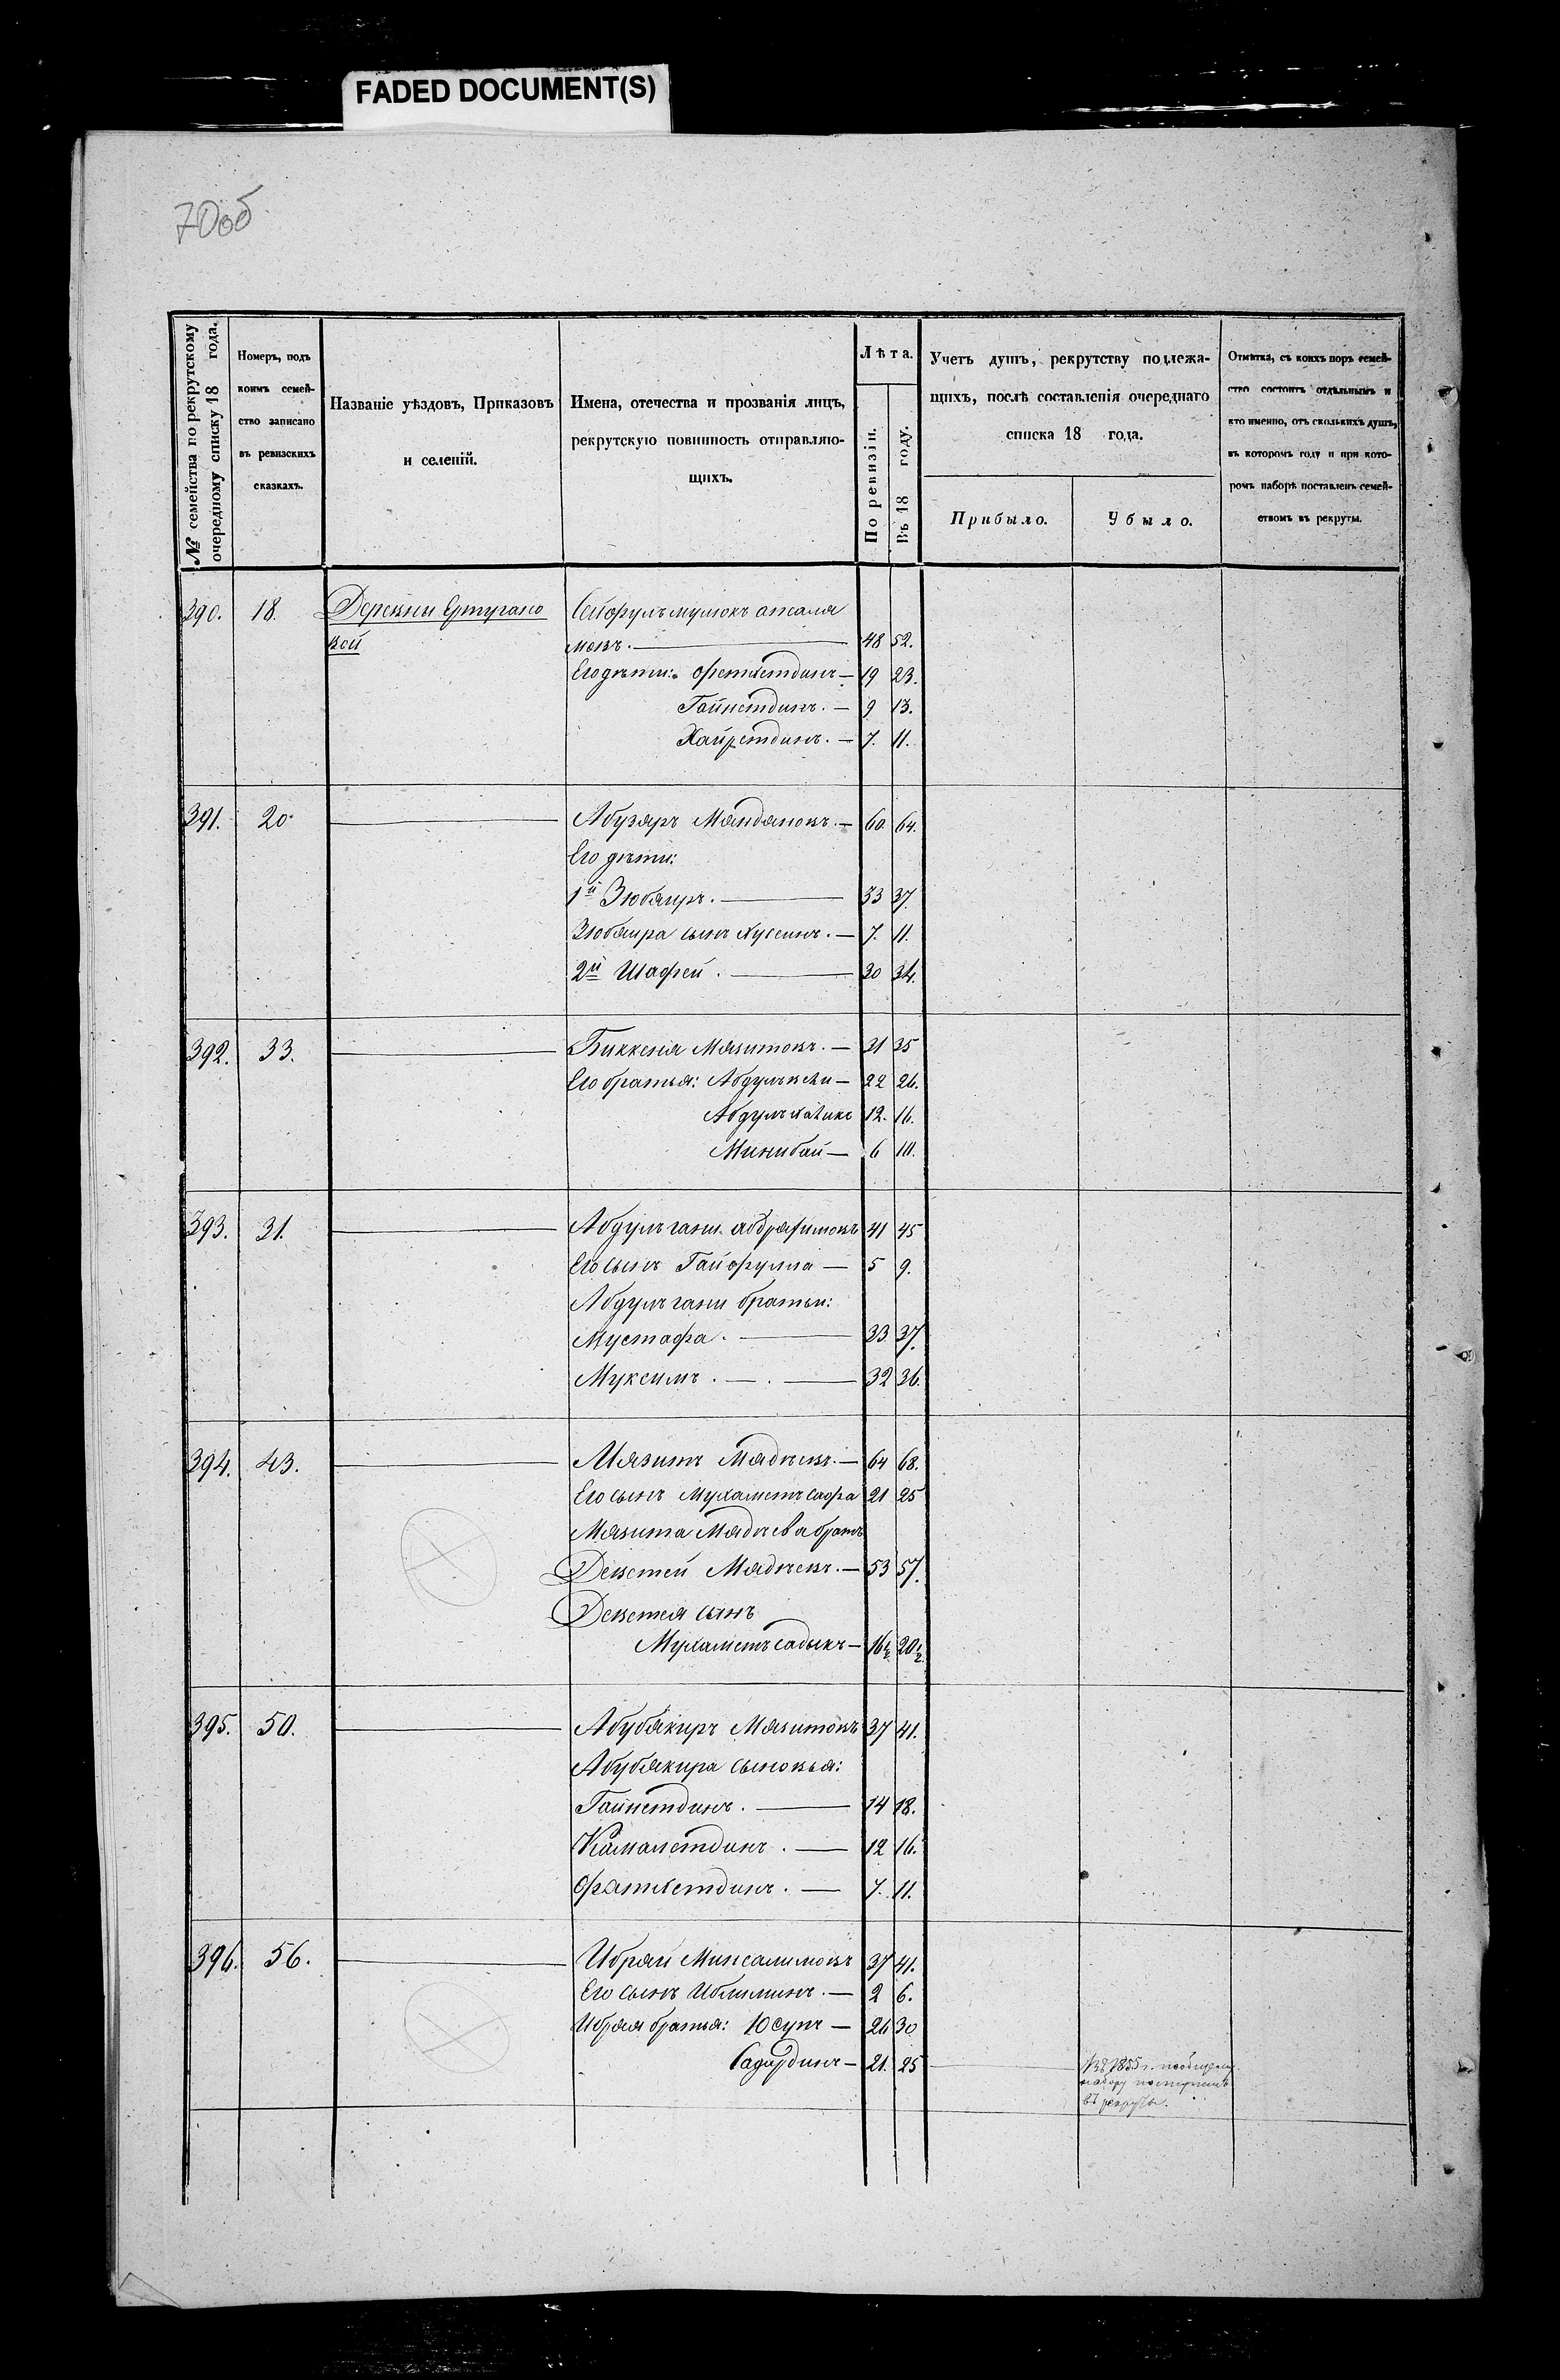 FADED DOCUMENT(S)
70об
№ семейства по рекрутскому
очередному списку 18 года.
Номеръ, подъ
коимъ семей-
ство записано
въ ревизскихъ
сказкахъ.
Названіе уѣздовъ, Приказовъ
и селеній.
Имена, отечества и прозванія лицъ,
рекрутскую повинность отправляю-
щихъ.
Лѣта.
По ревизіи.
Въ 18 году.
Учетъ душъ, рекрутству подлежа-
щихъ, послѣ составленія очереднаго
списка 18 года.
Прибыло.
Убыло.
Отмѣтка, съ коихъ поръ семей-
ство состоитъ отдѣльнымъ и
кто именно, отъ сколькихъ душъ,
въ которомъ году и при кото-
ромъ наборѣ поставленъ семей-
ствомъ въ рекруты.
390. 18. Деревни Ертугано
вой
мовъ. 48 52.
Его дѣти: Фетхетдинъ 19 23.
Гайнетдинъ. 9 13.
Хайретдинъ. 7. 11.
391. 20. Абузяръ Мандановъ. 60. 64.
Его дѣти:
1й Зюбаиръ. 33 37.
Зюбаира сынъ Хусеинъ. 7. 11.
2й Шафей. 30 34.
392. 33. Биккеня Мязитовъ. 31 35
Его братья: 22 26.
12. 16.
Минибай 6 10.
393. 31. Абдулъгани 41 45
Его сынъ Гайфулла 5 9.
Абдулъгани братьи:
Мустафа. 33 37.
Муксинъ. 32 36.
394. 43. Мязитъ Мядѣевъ. 64 68.
Его сынъ Мухаметъ сафа 21 25
Мязита Мядѣева братъ
Девлетей Мядѣевъ. 53 57.
Девлетея сынъ
Мухаметъ садыкъ 16½ 20½
395. 50. Абубякиръ Мязитовъ 37 41.
Абубякира сыновья:
Гайнетдинъ. 14 18.
Камалетдинъ. 12 16.
Фатхетдинъ. 7. 11.
396. 56. Ибрай Минсалимовъ 37 41.
Его сынъ Иблиминъ. 2 6.
Ибрая братья: Юсупъ 26 30
Садардинъ 21. 25 Въ 1855 г. по общему
набору поступилъ
въ рекруты.